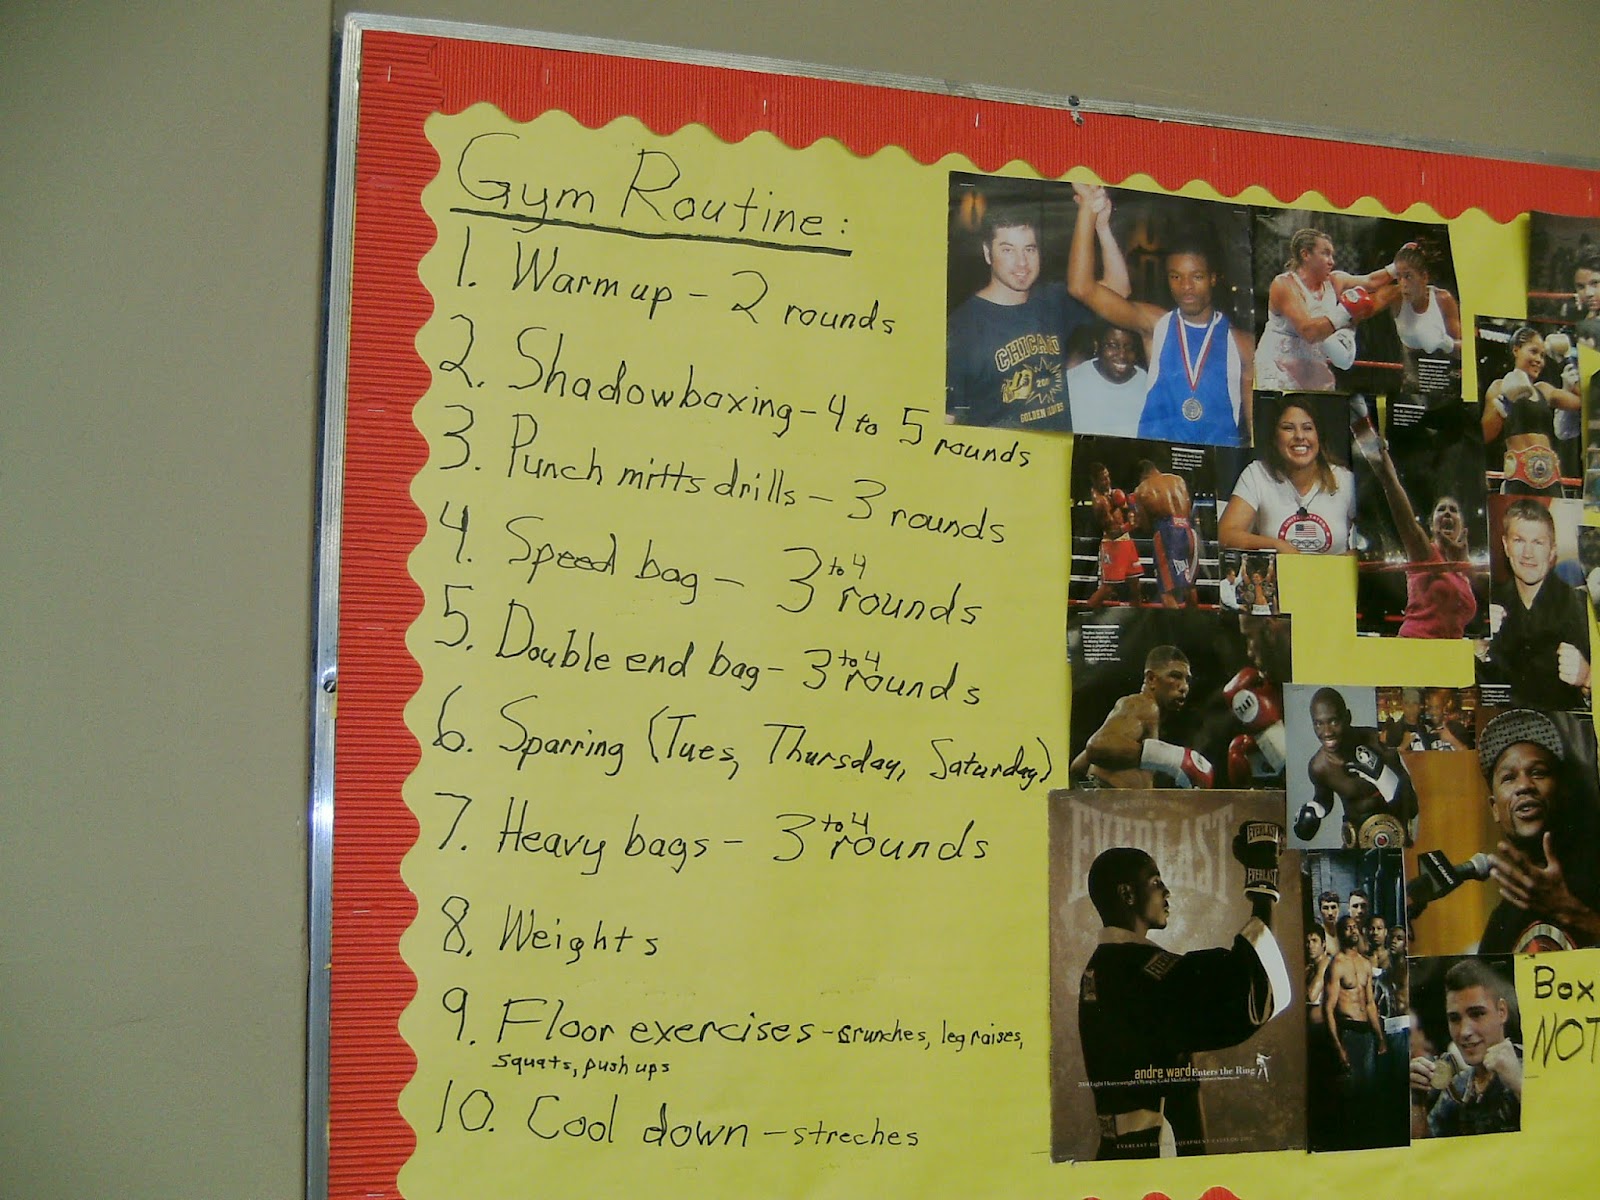 Gym Routine:
1. Warm up - 2 rounds
2. Shadowboxing - 4 to 5 rounds
3. Punch mitts drills - 3 rounds
4. Speed bag - 3 to 4 rounds
5. Double end bag - 3 to 4 rounds
6. Sparring (Tues, Thursday, Saturday)
7. Heavy bags - 3 to 4 rounds
8. Weights
9. Floor exercises - crunches, leg raises,
squats, push ups
10. Cool down - streches
CHICAGO
GOLDEN GLOVES
UNITED STATES
EVERLAST
EVERLAST
EVERLAST
andre ward Enters the Ring
Box
NOT